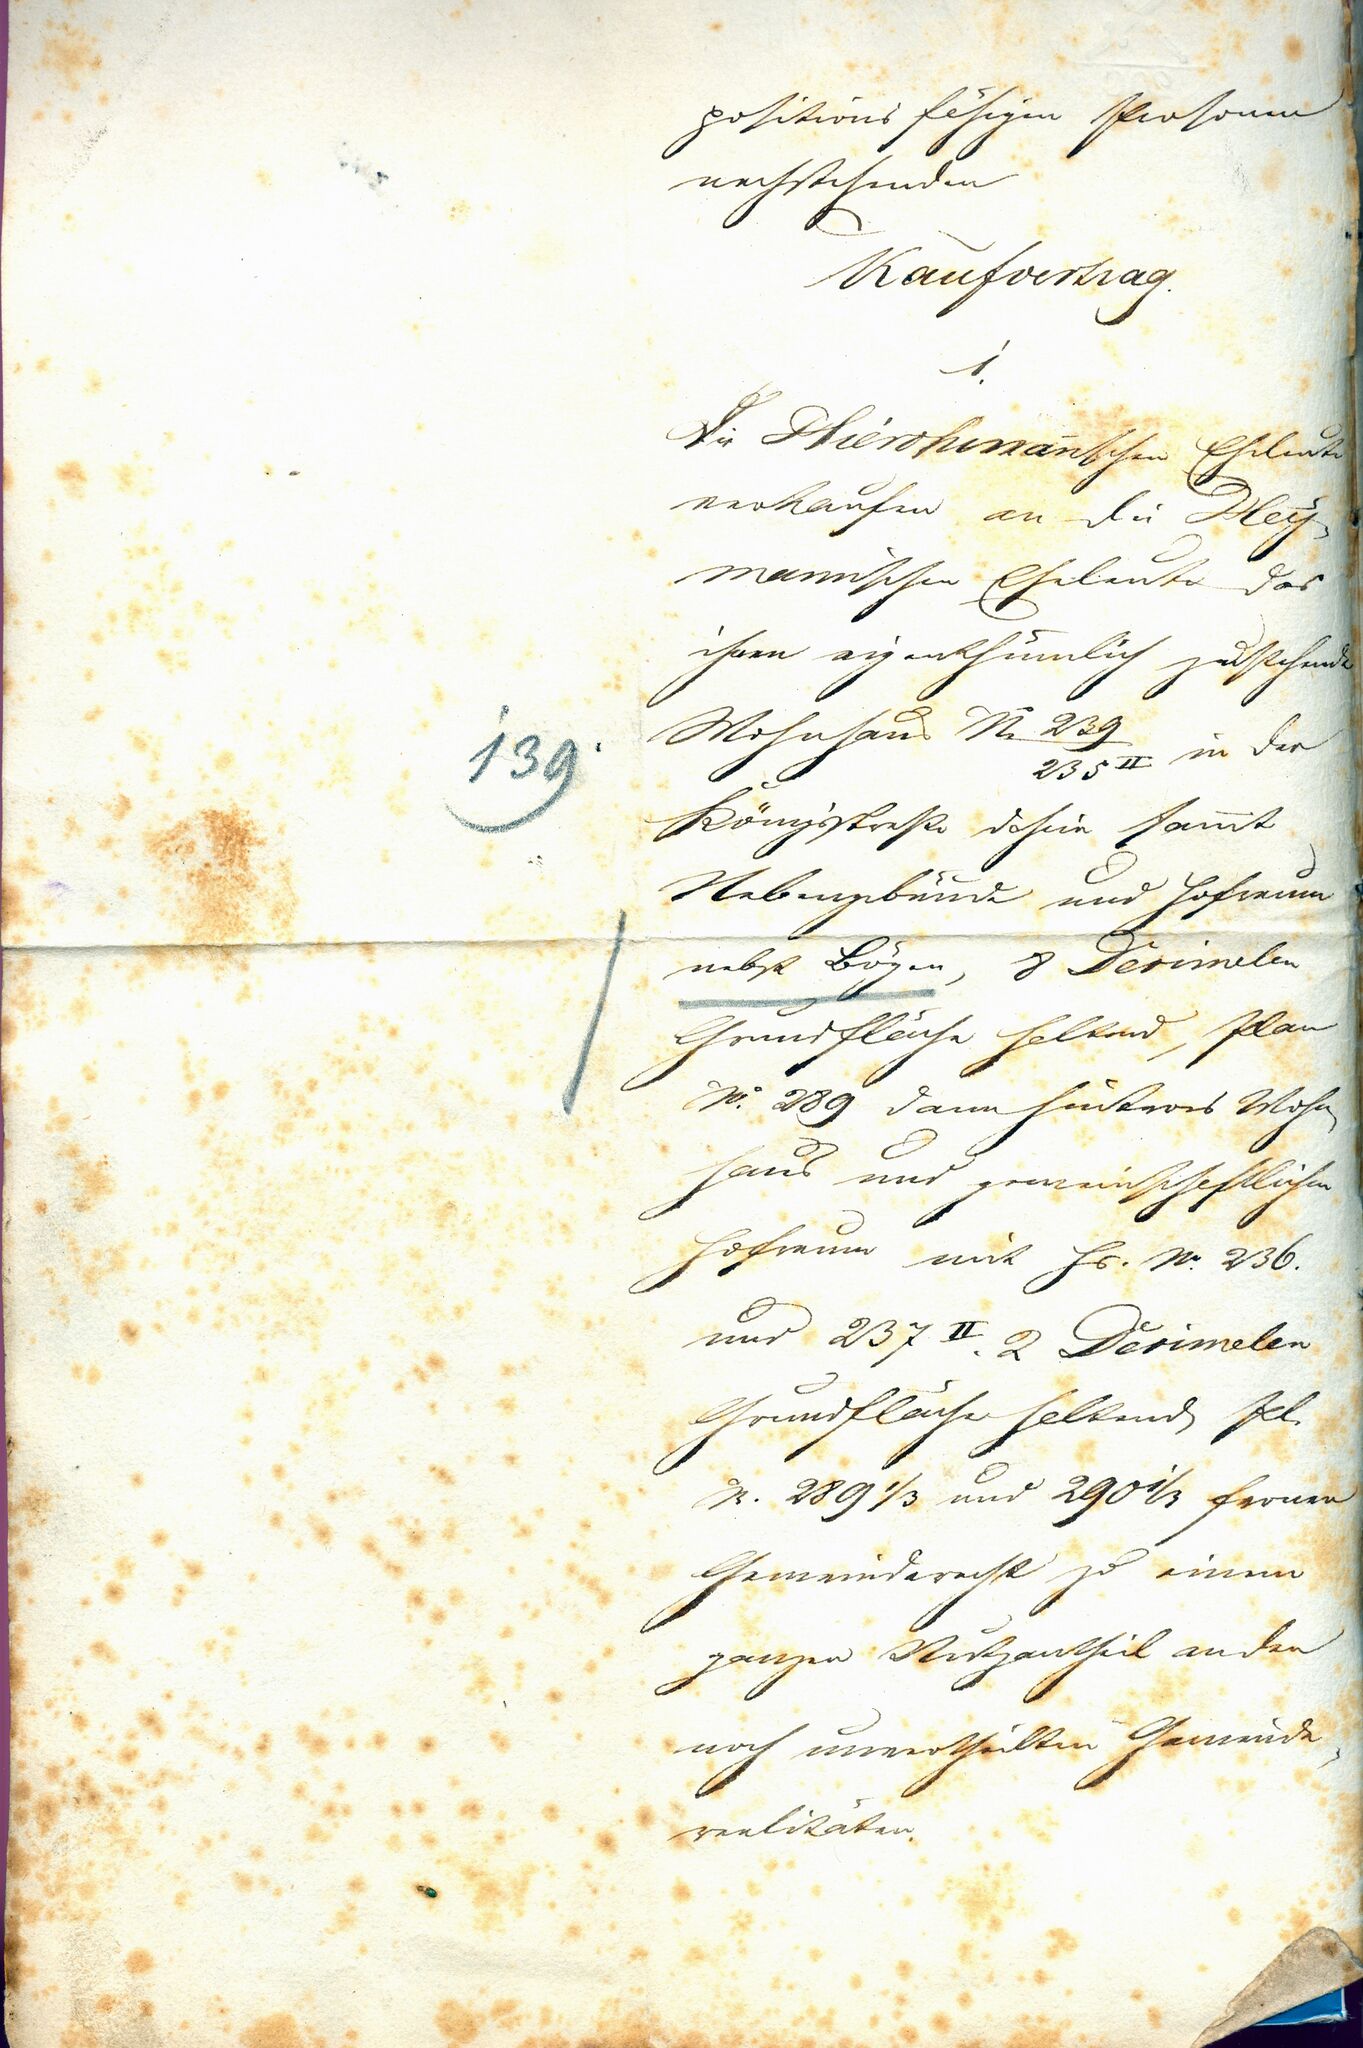 positionsfähigen Personen
nachstehenden
Kaufvertrag.
1.
Die Hierohmannschen Eheleute
verkaufen an die Hey-
mannischen Eheleute das
ihnen eigenthümlich zustehende
Wohnhaus N. 239
235 II in der
139.
Königsstraße dahier sammt
Nebengebäude und Hofraum
nebst Bögen, 8 Decimalen
Grundfläche haltend, Plan
No. 289 dann hinteres Wohn-
haus und gemeinschaftlichen
Hofraum mit Hs. No. 236.
und 237 II. 2 Decimalen
Grundfläche haltend, Pl.
N. 289 1/3 und 290 1/3 ferner
Gemeinderecht zu einem
ganzen Nutzantheil an den
noch unvertheilten Gemeinde-
realitäten.